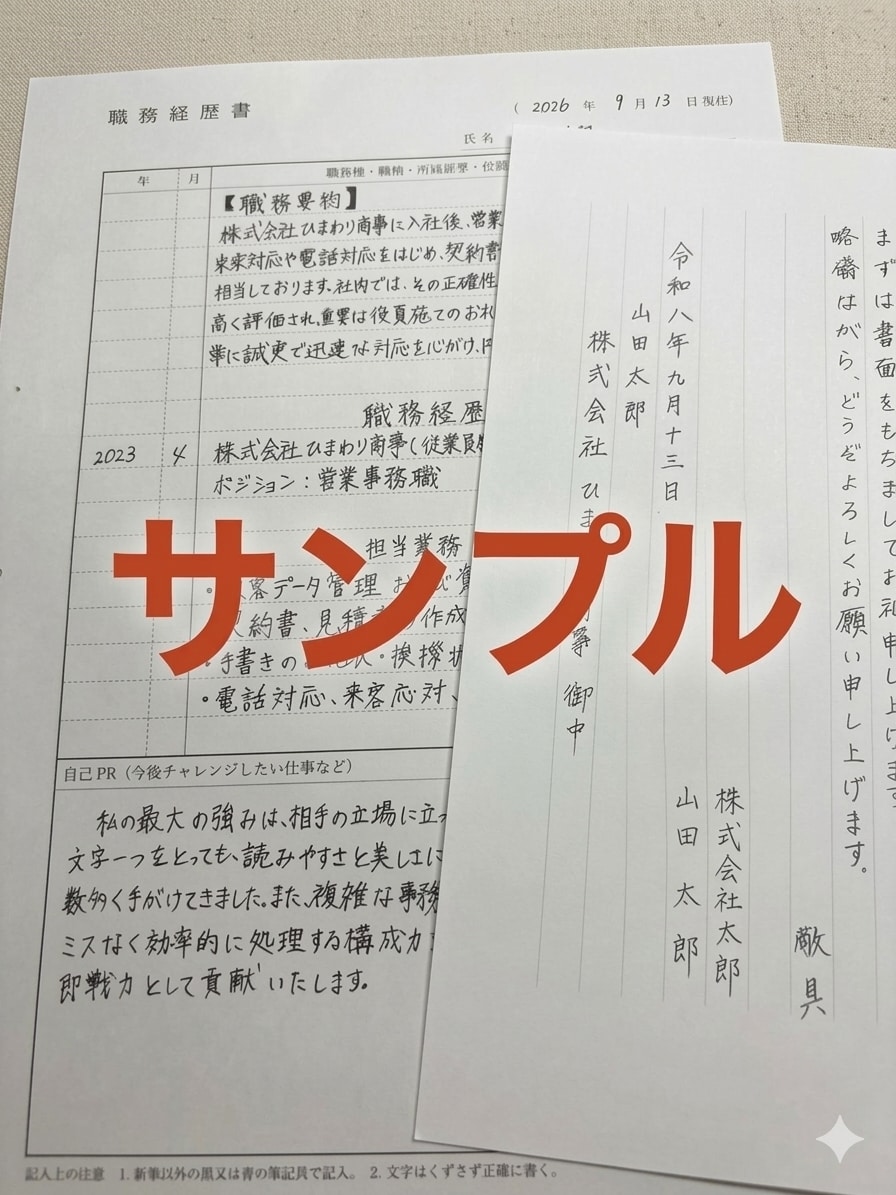 職務経歴書
( 2026 年 9 月 13 日現住)
氏名
年 月
【職務要約】
株式会社ひまわり商事に入社後、営業
来来対応や電話対応をはじめ、契約書
相当しております。社内では、その正確性
高く評価され、重要は役員施てのお礼
準に誠更で迅速な対応を心がけ、円
職務経歴
2023 4 株式会社ひまわり商事(従業員
ポジション:営業事務職
担当業務
客データ管理 および
約書、見積 作成
・手書きの 挨拶状
・電話対応、来客応対、
自己PR(今後チャレンジしたい仕事など)
私の最大の強みは、相手の立場に立っ
文字一つをとっても、読みやすさと美しさに
数多く手がけてきました。また、複雑な事務
ミスなく効率的に処理する構成力
即戦力として貢献いたします。
記入上の注意 1. 新筆以外の黒又は青の筆記具で記入。 2. 文字はくずさず正確に書く。
まずは書面をもちましてお礼申し上げます
略儀はがら、どうぞよろしくお願い申し上げます。
敵具
株式会社太郎
山田太郎
令和八年九月十三日
山田太郎
株式会社ひま 御中
サンプル